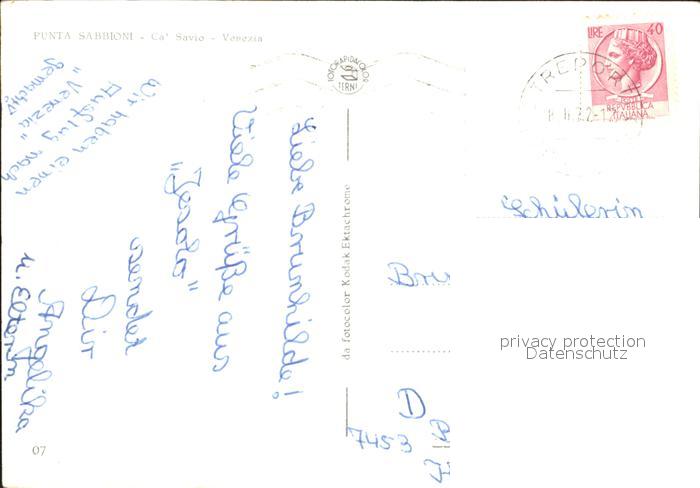 PUNTA SABBIONI - Ca' Savio - Venezia
Wir haben einen
Ausflug nach
"Venezia"
gemacht.
Liebe Brunhilde!
Viele Grüße aus
"Jesolo"
sendet
Dir
Angelika
u. Eltern
07
da fotocolor Kodak Ektachrome
FOTORAPIDACOLOR
TERNI
LIRE 40
REPUBBLICA
ITALIANA
TREPORTI
Schülerin
Bru
privacy protection
Datenschutz
D
7453